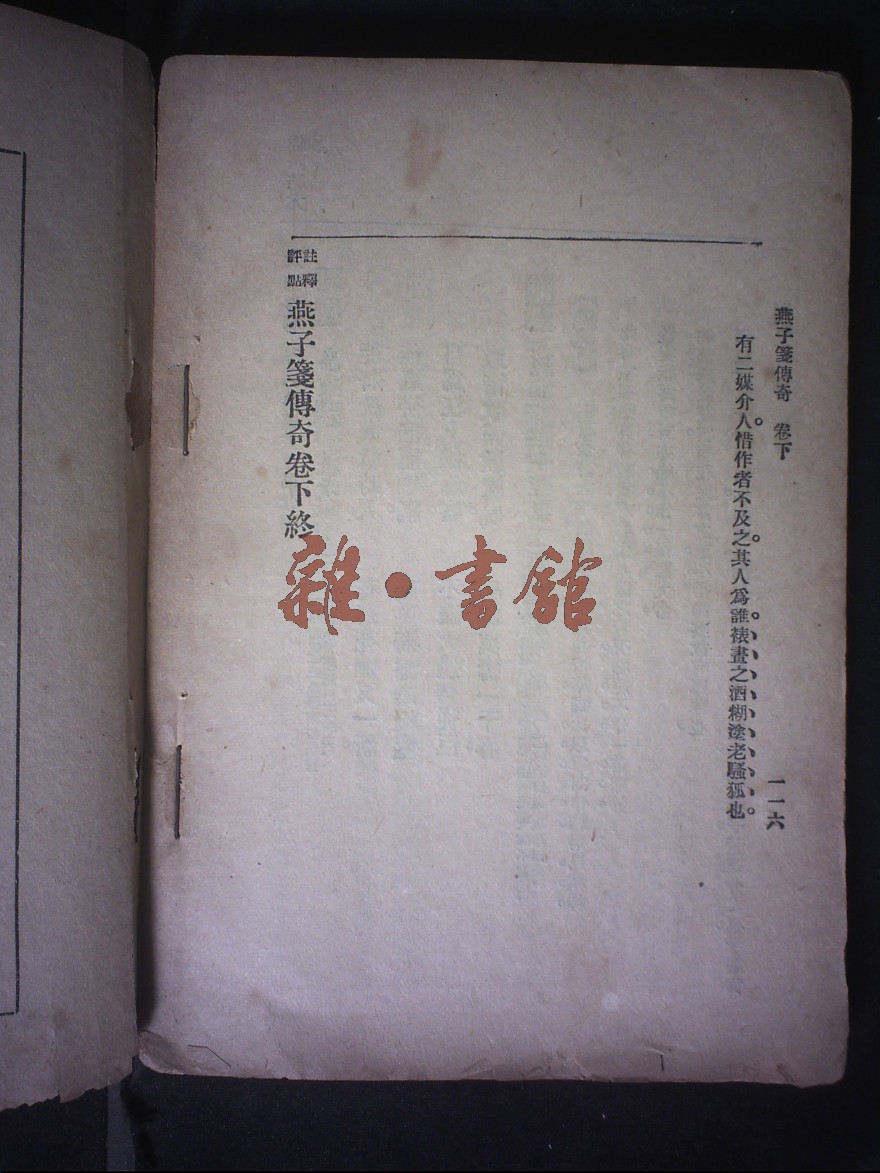 燕子箋傳奇 卷下
一一六
有二媒介人。惜作者不及之。其人爲誰。裱畫之酒糊塗老騷狐也。
註釋
評點
燕子箋傳奇卷下終
雜·書館